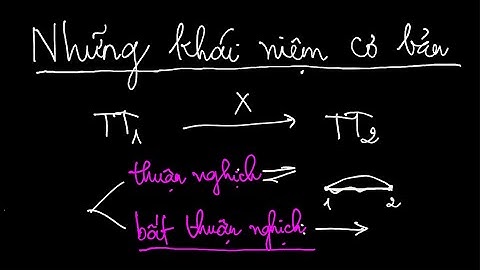 Những khái niệm cơ bản
X
TT1 → TT2
thuận nghịch ⇌
1 2
bất thuận nghịch: →